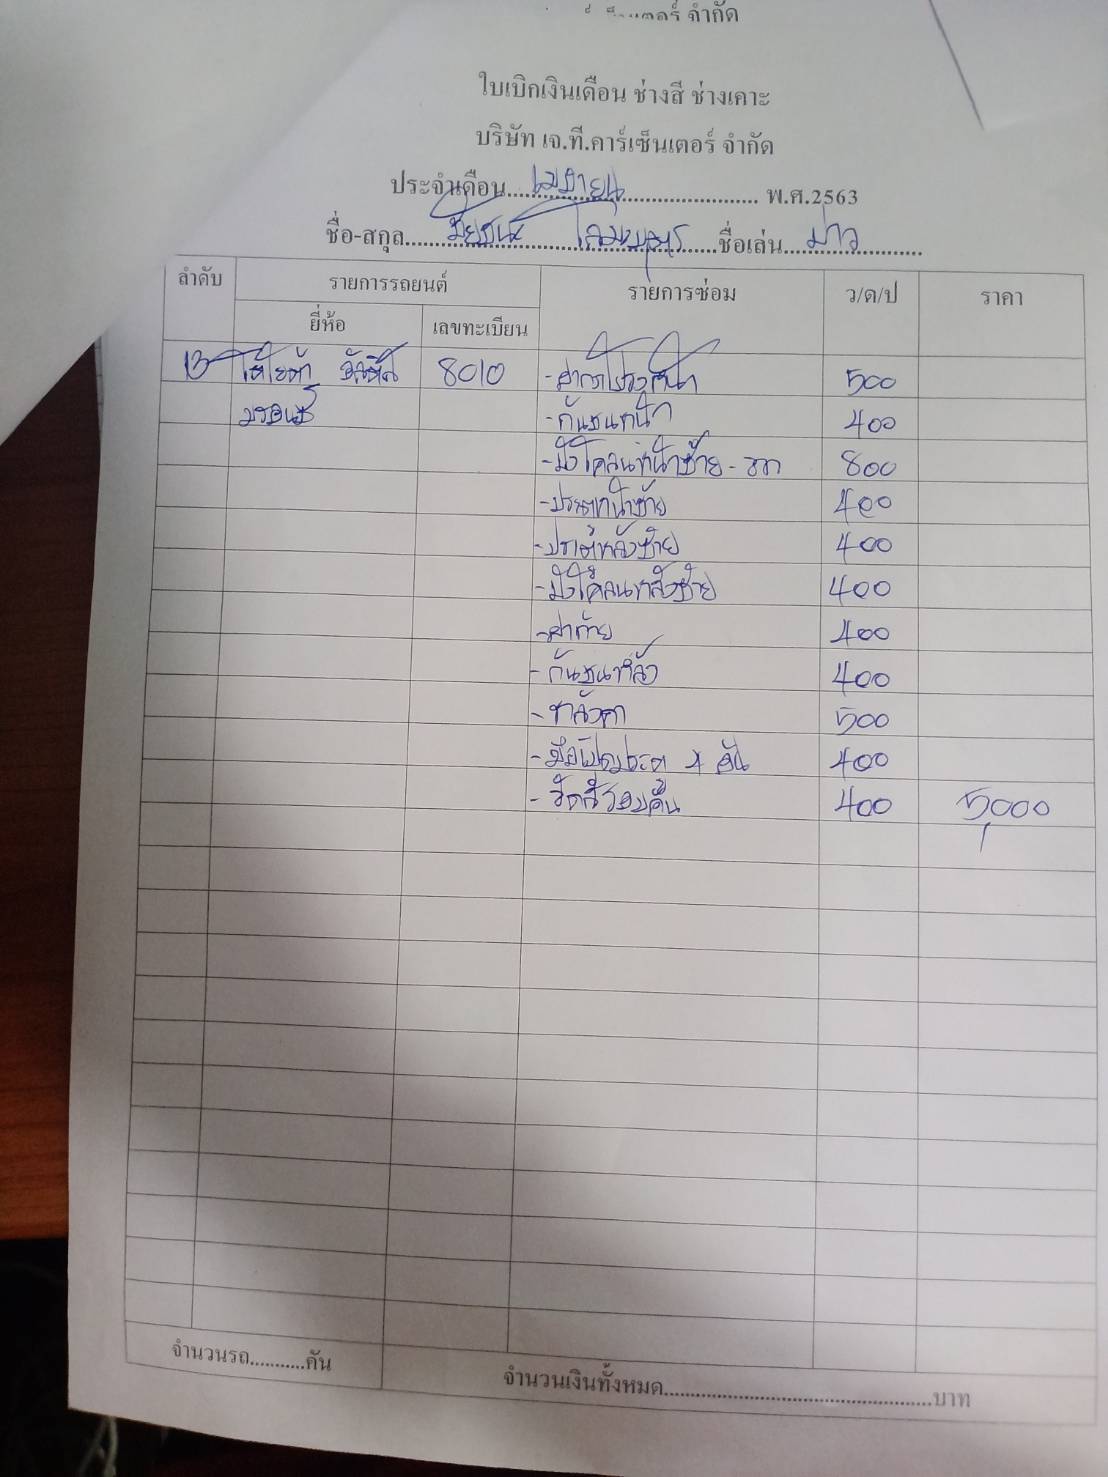 จำกัด
ใบเบิกเงินเดือน ช่างสี ช่างเคาะ
บริษัท เจ.ที.คาร์เซ็นเตอร์ จำกัด
ประจำเดือน เมษายน พ.ศ.2563
ชื่อ-สกุล ชื่อเล่น
ลำดับ รายการรถยนต์ รายการซ่อม ว/ด/ป ราคา
ยี่ห้อ เลขทะเบียน
13 โตโยต้า อัลติส 8010 -ฝากระโปรงหน้า 500
บรอนซ์ -กันชนหน้า 400
-บังโคลนหน้าซ้าย - ขวา 800
-ประตูหน้าซ้าย 400
-ประตูหลังซ้าย 400
-บังโคลนหลังซ้าย 400
-ฝาท้าย 400
-กันชนหลัง 400
-หลังคา 500
-มือเปิดประตู 4 อัน 400
-ขัดสีรอบคัน 400 5,000
จำนวนรถ...........คัน จำนวนเงินทั้งหมด..................................................บาท